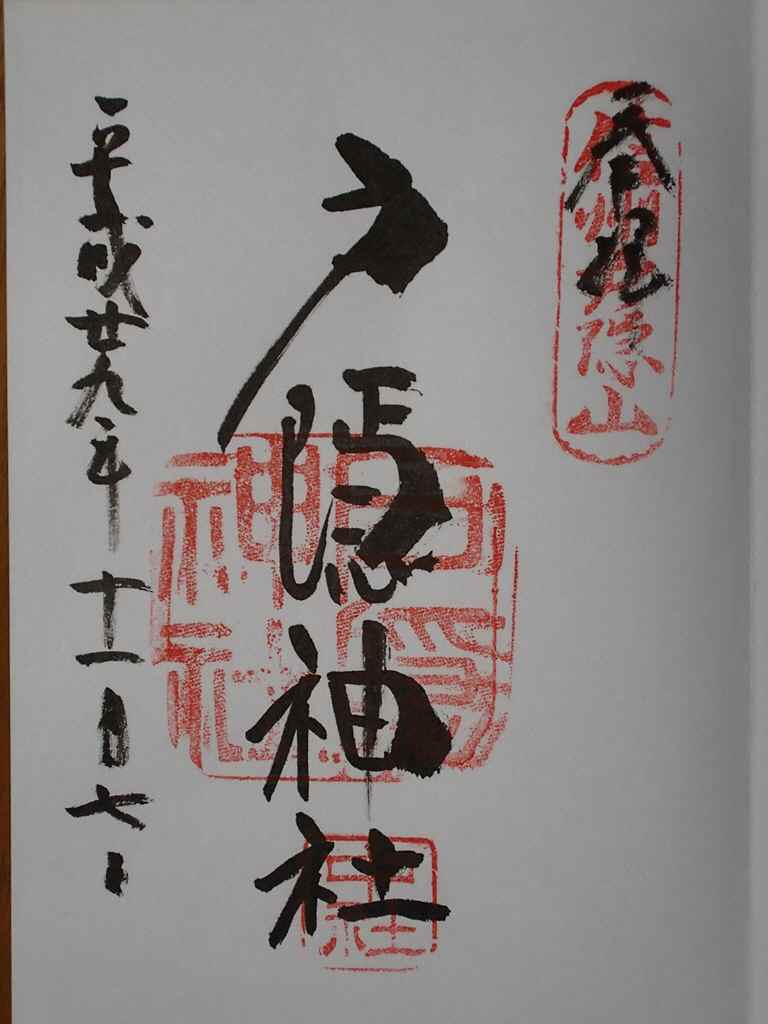 奉拝
信州戸隠山
戸隠神社
戸隠神社
平成廿九年十一月七日